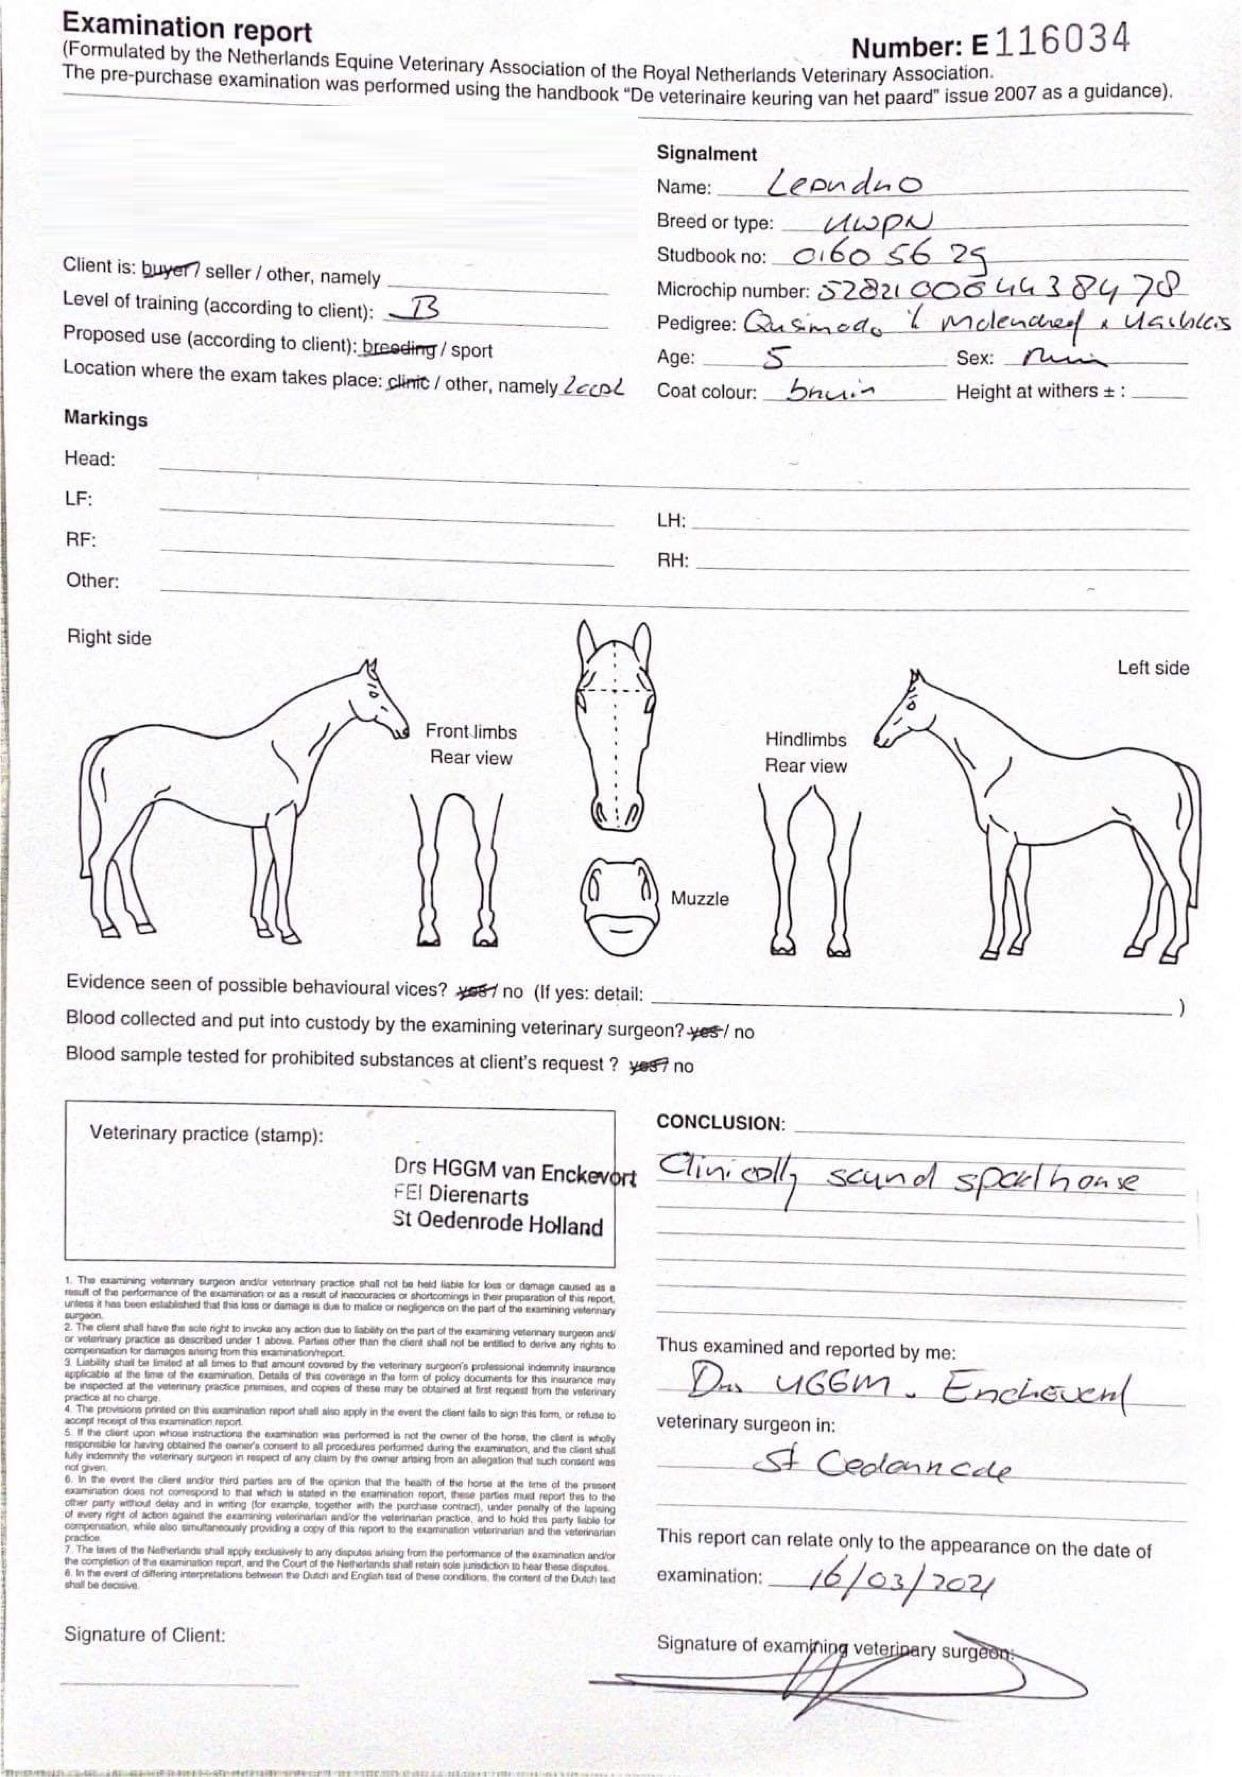 Examination report
Number: E 116034
(Formulated by the Netherlands Equine Veterinary Association of the Royal Netherlands Veterinary Association.
The pre-purchase examination was performed using the handbook "De veterinaire keuring van het paard" issue 2007 as a guidance).
Signalment
Name:
Breed or type: KWPN
Studbook no: 016056 29
Microchip number: 5282100064438478
Pedigree:
Age: 5 Sex: ruin
Coat colour: bruin Height at withers ± :
Client is: buyer / seller / other, namely
Level of training (according to client): B
Proposed use (according to client): breeding / sport
Location where the exam takes place: clinic / other, namely
Markings
Head:
LF:
LH:
RF:
RH:
Other:
Right side
Left side
Front limbs
Rear view
Hindlimbs
Rear view
Muzzle
Evidence seen of possible behavioural vices? yes / no (If yes: detail: )
Blood collected and put into custody by the examining veterinary surgeon? yes / no
Blood sample tested for prohibited substances at client's request ? yes / no
Veterinary practice (stamp):
Drs HGGM van Enckevort
FEI Dierenarts
St Oedenrode Holland
1. The examining veterinary surgeon and/or veterinary practice shall not be held liable for loss or damage caused as a
result of the performance of the examination or as a result of inaccuracies or shortcomings in their preparation of this report,
unless it has been established that this loss or damage is due to malice or negligence on the part of the examining veterinary
surgeon.
2. The client shall have the sole right to invoke any action due to liability on the part of the examining veterinary surgeon and/
or veterinary practice as described under 1 above. Parties other than the client shall not be entitled to derive any rights to
compensation for damages arising from this examination/report.
3. Liability shall be limited at all times to that amount covered by the veterinary surgeon's professional indemnity insurance
applicable at the time of the examination. Details of this coverage in the form of policy documents for this insurance may
be inspected at the veterinary practice premises, and copies of these may be obtained at first request from the veterinary
practice at no charge.
4. The provisions printed on this examination report shall also apply in the event the client fails to sign this form, or refuse to
accept receipt of this examination report.
5. If the client upon whose instructions the examination was performed is not the owner of the horse, the client is wholly
responsible for having obtained the owner's consent to all procedures performed during the examination, and the client shall
fully indemnify the veterinary surgeon in respect of any claim by the owner arising from an allegation that such consent was
not given.
6. In the event the client and/or third parties are of the opinion that the health of the horse at the time of the present
examination does not correspond to that which is stated in the examination report, these parties must report this to the
other party without delay and in writing (for example, together with the purchase contract), under penalty of the lapsing
of every right of action against the examining veterinarian and/or the veterinarian practice, and to hold this party liable for
compensation, while also simultaneously providing a copy of this report to the examination veterinarian and the veterinarian
practice.
7. The laws of the Netherlands shall apply exclusively to any disputes arising from the performance of the examination and/or
the completion of the examination report, and the Court of the Netherlands shall retain sole jurisdiction to hear these disputes.
8. In the event of differing interpretations between the Dutch and English text of these conditions, the content of the Dutch text
shall be decisive.
Signature of Client:
CONCLUSION:
Clinically sound sporthorse
Thus examined and reported by me:
Drs HGGM v. Enckevort
veterinary surgeon in:
St Oedenrode
This report can relate only to the appearance on the date of
examination: 16/03/2021
Signature of examining veterinary surgeon: